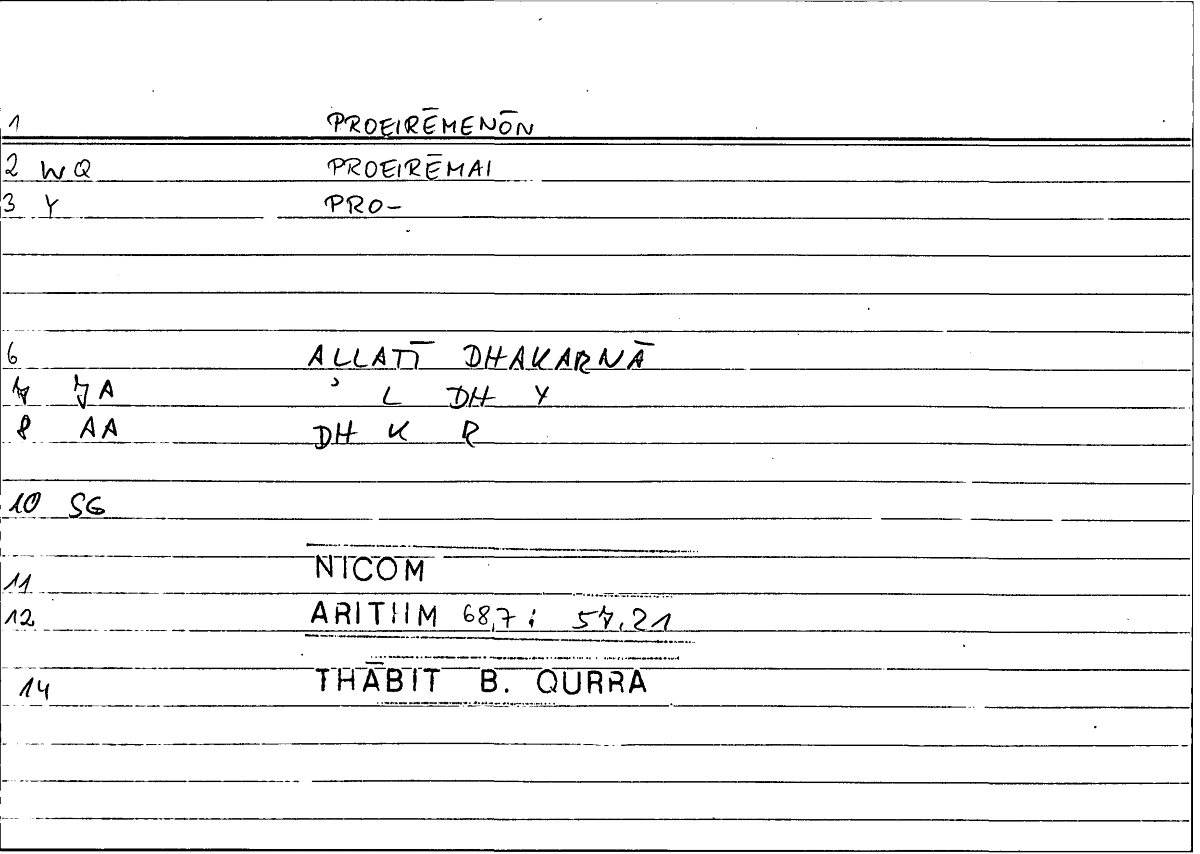 1 PROEIRĒMENŌN
2 WQ PROEIRĒMAI
3 Y PRO-
6 ALLATĪ DHAKARNĀ
7 7A ʾ L DH Y
8 AA DH K R
10 SG
11 NICOM
12 ARITHM 68,7 ; 57.21
14 THĀBIT B. QURRA